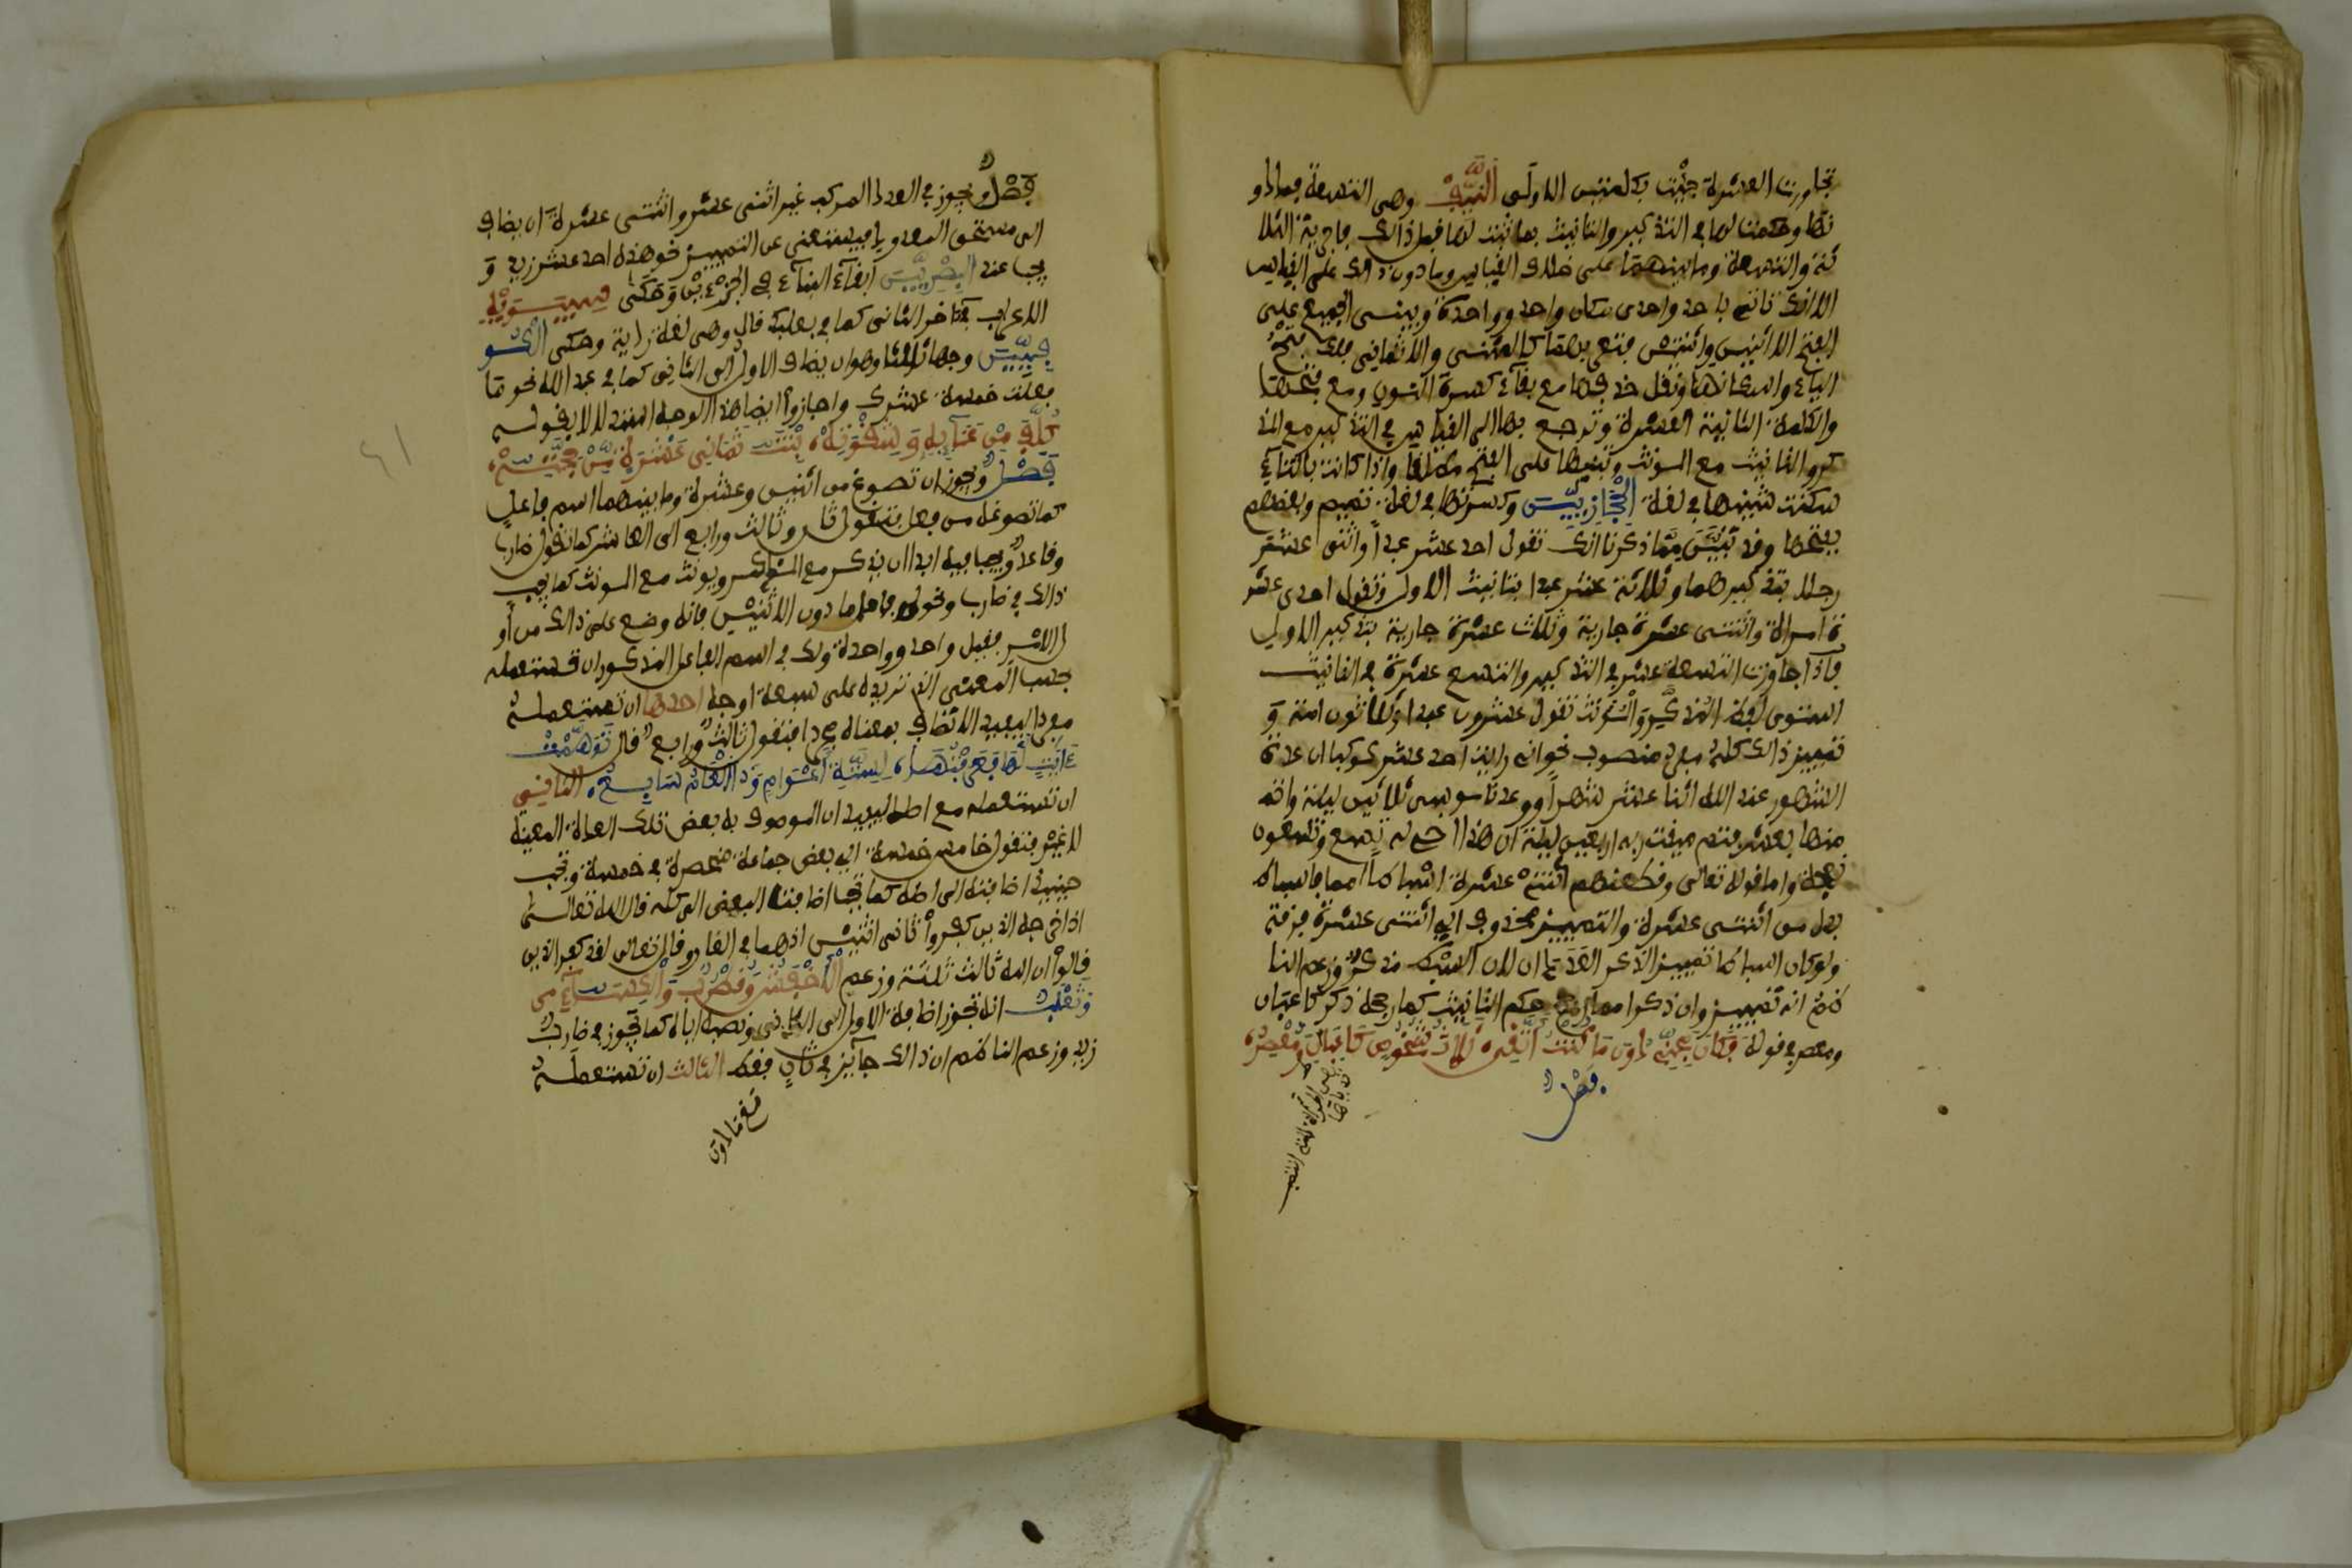 تجاوزت العشرة جئت بكلمتين الاولى النَّيِّفُ وهى التسعة فما دو
نها وحكمت لها فى التذكير والتانيث بما ثبت لها قبل ذالك فاجريت الثلا
ثة والتسعة وما بينهما على خلاف القياس وما دون ذالك على القياس
الا انك تاتى باحد واحدى مكان واحد وواحدة وتبنى الجميع على
الفتح الا اثنين واثنتين فتعربهما كالمثنى والا ثمانى فلك فتح
الياء واسكانها ويقل حذفها مع بقاء كسرة النون ومع فتحها
والكلمة الثانية العشرة وترجع بها الى القياس فى التذكير مع المذ
كر والتانيث مع المونث وتبنيها على الفتح مطلقا واذا كانت بالتاء
سكنت شينها فى لغة الحجازيين وكسرتها فى لغة تميم وبعضهم
يفتحها وقد تبيَّن ممّا ذكرنا انك تقول احد عشر عبداً واثنى عشر
رجلا بتذكيرهما وثلاثة عشر عبدا بتانيث الاول وتقول احدى عشر
ة امراة واثنتى عشرة جارية وثلاث عشرة جارية بتذكير الاول
فاذا جاوزت التسعة عشر فى التذكير والتسع عشرة فى التانيث
استوى لفظ المذكّر والمؤنث تقول عشرون عبدا وثلاثون امة وَ
تمييز ذالك كله مفرد منصوب نحو انى رايت احد عشر كوكبا ان عدة
الشهور عند الله اثنا عشر شهراً وواعدنا موسى ثلاثين ليلة واتممـ
ـنها بعشر فتم ميقت ربه اربعين ليلة ان هذا اخى له تسع وتسعون
نعجة واما قوله تعالى وقطعنهم اثنتى عشرة اسباطا امما فاسباطا
بدل من اثنتى عشرة والتمييز محذوف اى اثنتى عشرة فرقة
ولو كان اسباطا تمييز الذكر العددان لان السبط مذكر وزعم النا
ظم انه تمييز وان ذكر امما رجح حكم التانيث كما رجحه ذكر كاعبان
ومعصر فى قوله فكان مِجَنِّى دون مَا كُنتُ اَتَّقِى ثلاث شُخُوصٍ كَاعِبَانِ وَمُعْصِرُ
فَصْلٌ
فَصْلٌ ويجوز فى العدد المركب غير اثنى عشر واثنتى عشرة ان يضاف
الى مستحق المعدود فيستغنى عن التمييز نحو هذه احد عشر زيد وَ
يجب عند البصريين ابقاء البناء فى الجزءين وحَكى سيبَوَيْهِ
الاعراب فى ءاخر الثانى كما فى بعلبك قال وهى لغة ردية وحكى الكو
فِيِّين وجها ثالثا وهو ان يضاف الاول الى الثانى كما فى عبد الله نحو ما
فعلت خمسة عشرك واجازوا ايضا هذا الوجه استدلالا بقوله
كُلِّفَ مِنْ عَنَائِهِ وَشِقْوَتِهْ بِنْتَ ثَمَانِى عَشْرَةٍ مِّنْ حِجَّتِهْ
فَصْلٌ ويجوز ان تصوغ من اثنين وعشرة وما بينهما اسم فاعل
كما تصوغه من فعل فتقول ثان وثالث ورابع الى العاشر كما تقول ضارب
وقاعد ويجب فيه ابدا ان يذكر مع المذكر ويونث مع المونث كما يجب
ذالك فى ضارب ونحوه فاما ما دون الاثنين فانه وضع على ذالك من او
ل الامر فقيل واحد وواحدة ولك فى اسم الفاعل المذكور ان تستعمله
بحسب المعنى الذى تريده على سبعة اوجه احدها ان تستعمله
مفردا ليفيد الاتصاف بمعناه مجردا فتقول ثالث ورابع قال تَوَهَّمْتُ
ءَايَتٍ لَّهَا فَعَرَفْتُهَا لِسِتَّةِ أَعْوَامٍ وَذَا الْعَامُ سَابِعُ الثانى
ان تستعمله مع اصله ليفيد ان الموصوف به بعض تلك العدة المعينة
لا غير فتقول خامس خمسة اى بعض جماعة منحصرة فى خمسة ويجب
حينئذ اضافته الى اصله كما يجب اضافة البعض الى كله قال الله تعالى
اذ اخرجه الذين كفروا ثانى اثنين اذ هما فى الغار وقال تعالى لقد كفر الذين
قالوا ان الله ثالث ثلثة وزعم الاخفش وقطرب والكسائى
وثعلب انه يجوز اضافة الاول الى الثانى ونصبه اياه كما يجوز فى ضارب
زيد وزعم الناظم ان ذالك جائز فى ثان فقط الثالث ان تستعمله
مع ما دون